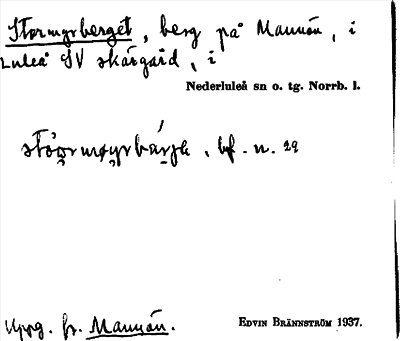 Stormyrberget, berg på Mannön, i
Luleå SV skärgård, i
Nederluleå sn o. tg. Norrb. l.
bf. n. 29
Uppg. fr. Mannön.
EDVIN BRÄNNSTRÖM 1937.